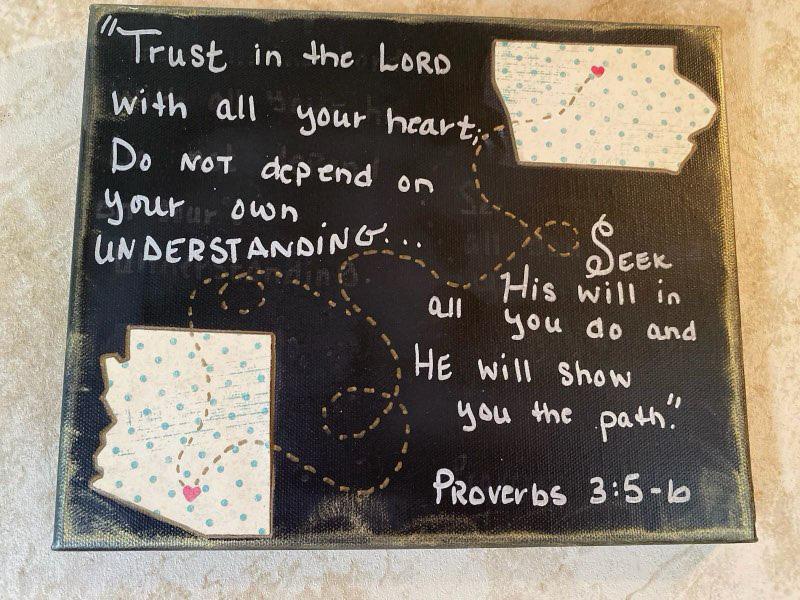 "Trust in the LORD
with all your heart;
Do NOT depend on
your own
UNDERSTANDING...
SEEK
His will in
all you do and
HE will show
you the path."
Proverbs 3:5-6